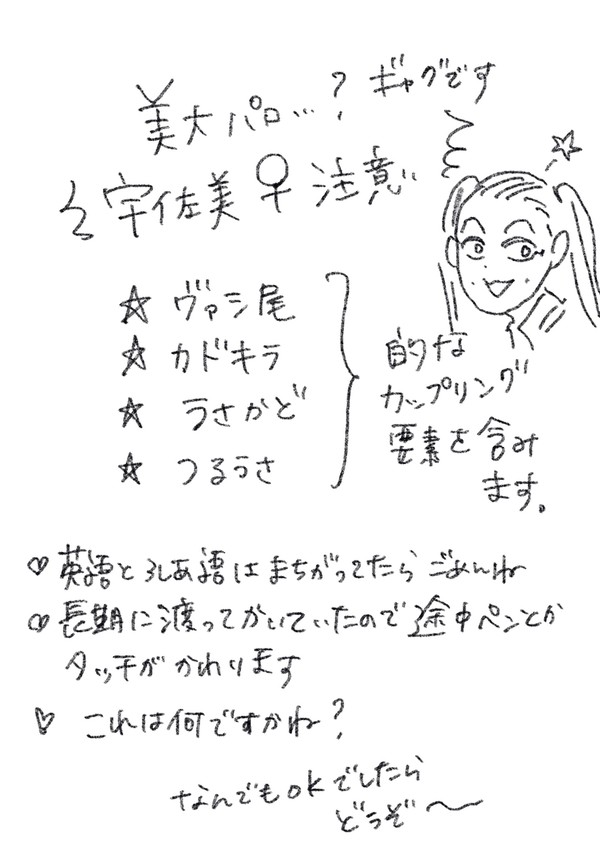 美大パロ…? ギャグです
宇佐美♀注意
☆ ヴァシ尾
☆ カドキラ
☆ うさかど
☆ つるうさ
的な
カップリング
要素を含み
ます。
♡ 英語とろしあ語はまちがってたらごめんね
♡ 長期に渡ってかいていたので途中ペンとか
タッチがかわります
♡ これは何ですかね?
なんでもOKでしたら
どうぞ〜